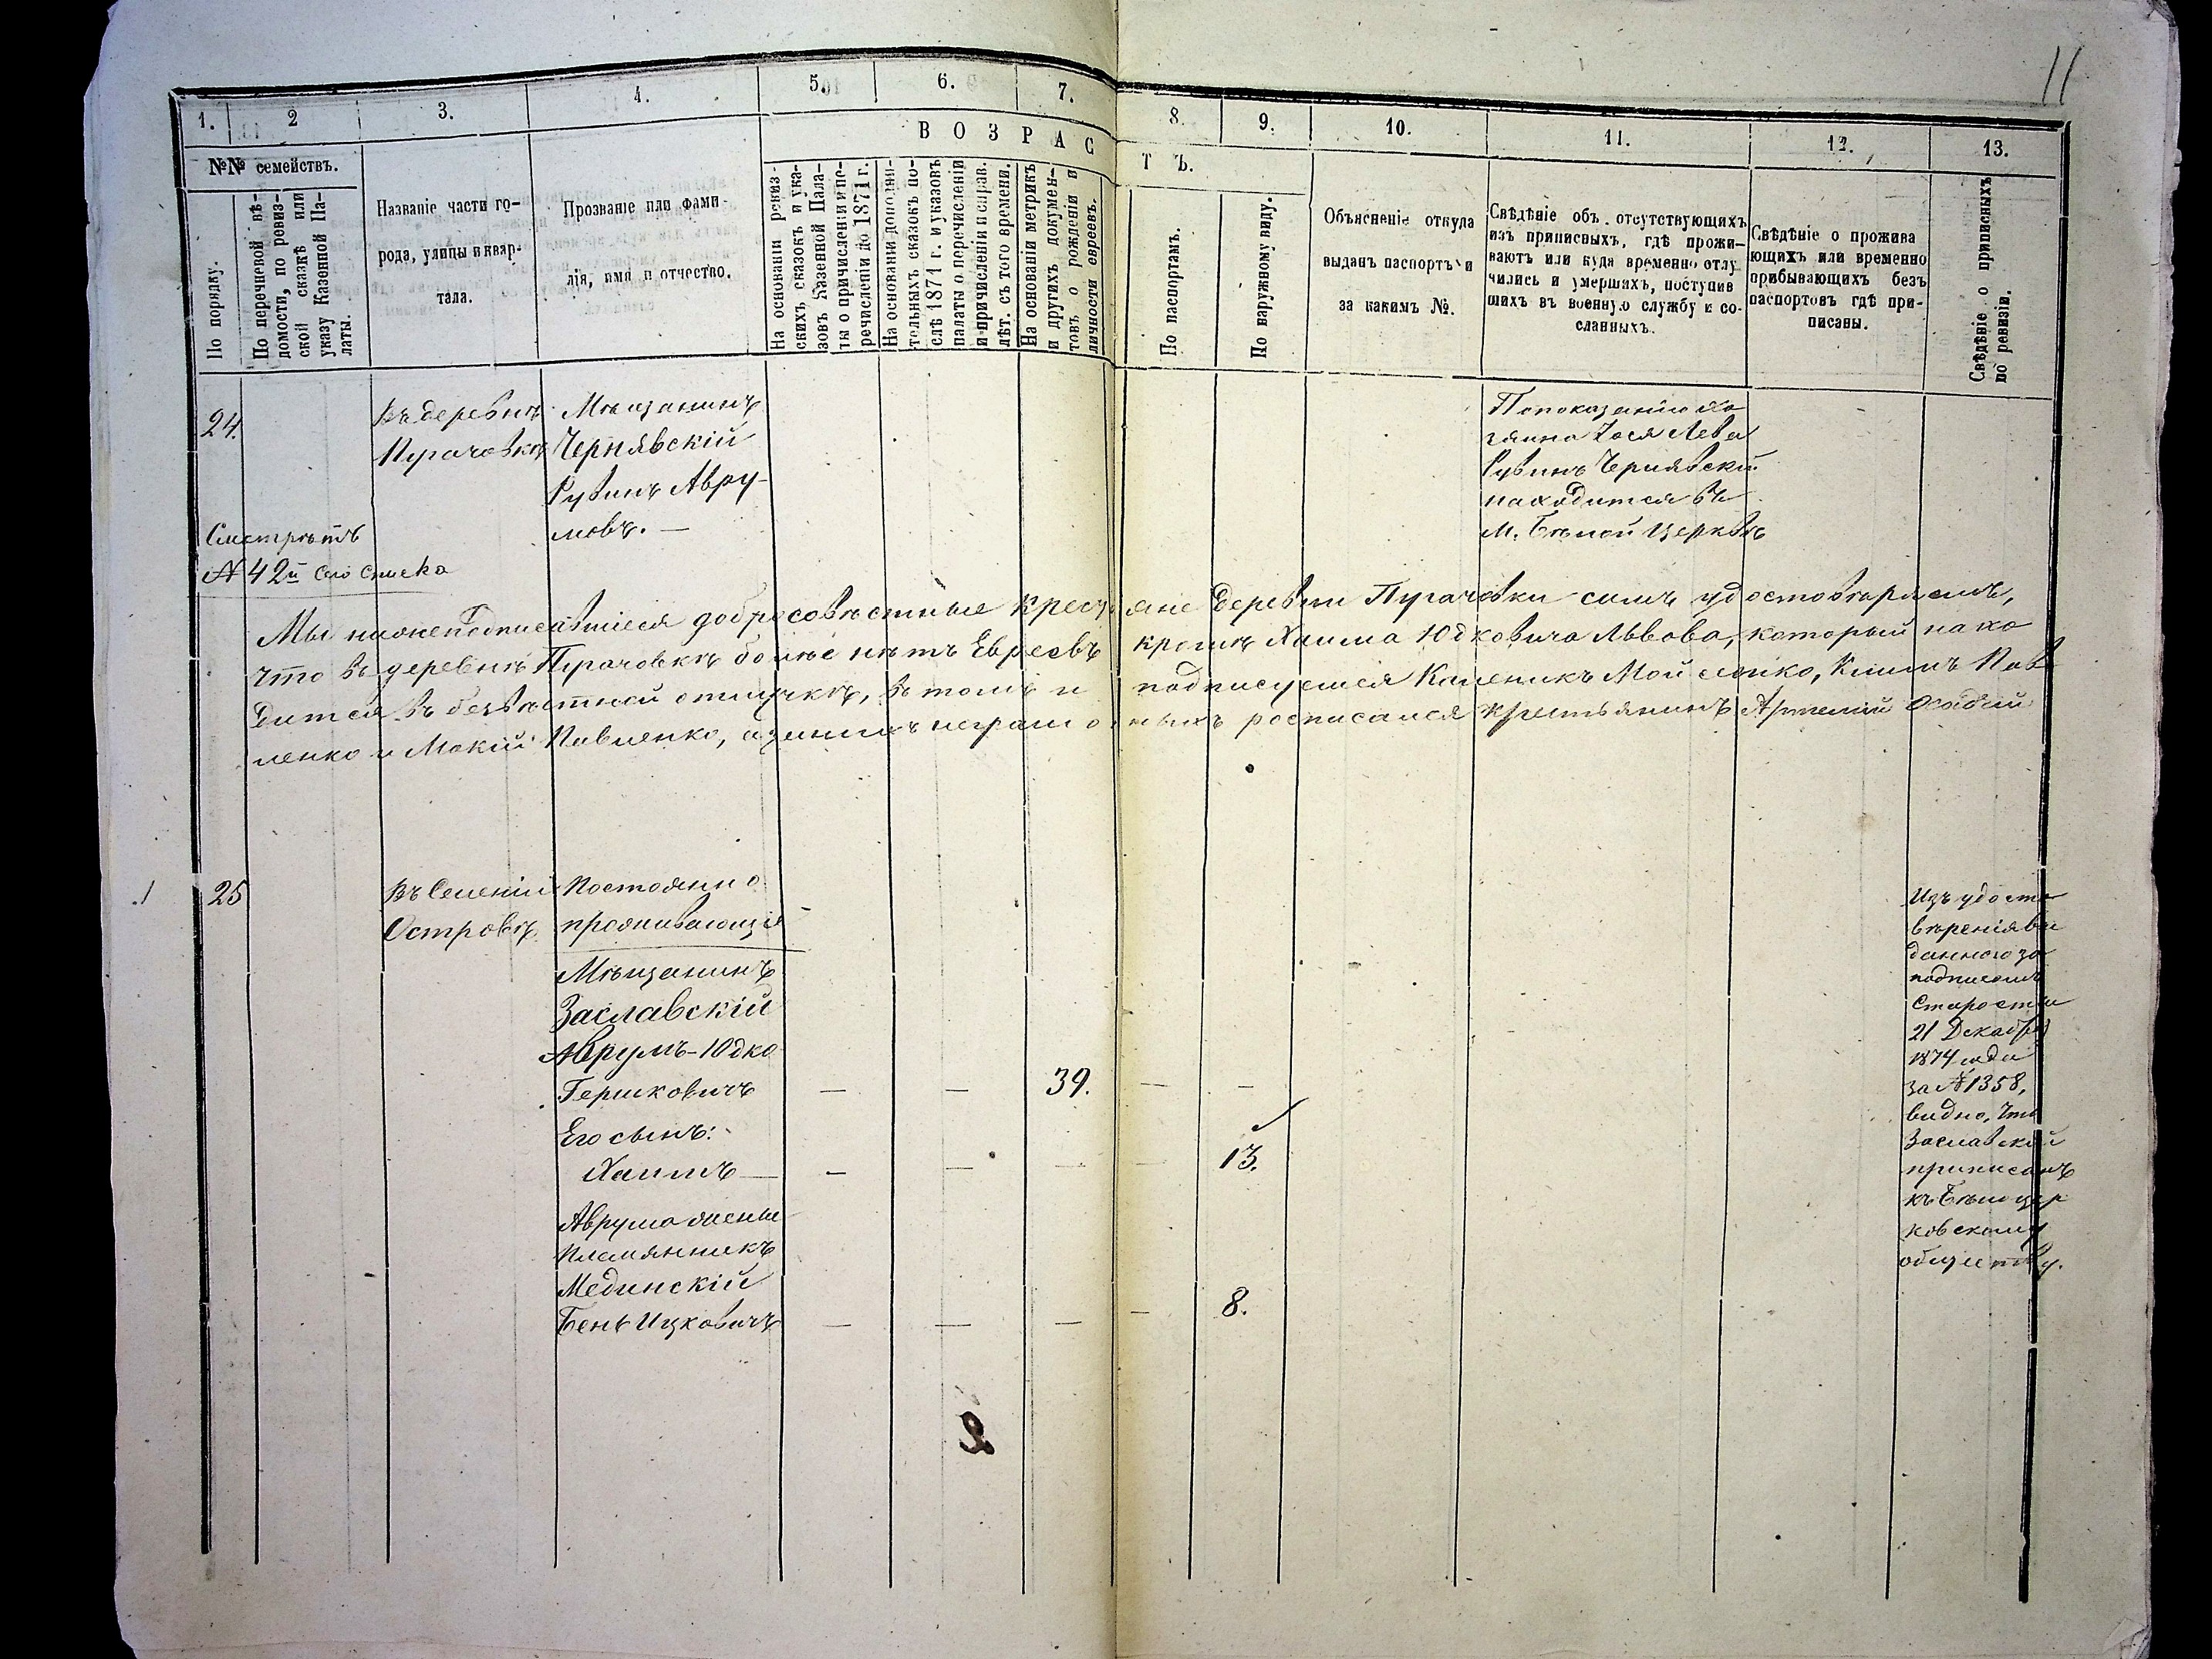 11
1. 2 3. 4. 5. 6. 7. 8. 9. 10. 11. 12. 13.
ВОЗРАСТЪ.
№№ семействъ.
По порядку.
По перечневой вѣ-
домости, по ревиз-
ской сказкѣ или
указу Казенной Па-
латы.
Названіе части го-
рода, улицы и квар-
тала.
Прозваніе или фами-
лія, имя и отчество.
На основаніи ревиз-
скихъ сказокъ и ука-
зовъ Казенной Пала-
ты о причисленіи и пе-
речисленіи до 1871 г.
На основаніи дополни-
тельныхъ сказокъ по-
слѣ 1871 г. и указовъ
палаты о перечисленіи
и причисленіи и справ.
лѣт. съ того времени.
На основаніи метрикъ
и другихъ докумен-
товъ о рожденіи и
личности евреевъ.
По паспортамъ.
По наружному виду.
Объясненіе откуда
выданъ паспортъ и
за какимъ №.
Свѣдѣніе объ отсутствующихъ
изъ приписныхъ, гдѣ прожи-
ваютъ или куда временно отлу-
чились и умершихъ, поступив
шихъ въ военную службу и со-
сланныхъ.
Свѣдѣніе о прожива
ющихъ или временно
прибывающихъ безъ
паспортовъ гдѣ при-
писаны.
Свѣдѣніе о приписныхъ
по ревизіи.
24.
Въ деревнѣ
Пугачовкѣ
Мѣщанинъ
Чернявскій
Рувинъ Авру-
мовъ. —
По показанію хо
зяина Іося Лева
Рувинъ Чернявскій
находится въ
м. Бѣлой Церквѣ
Смотрѣть
№ 42й сего списка
Мы нижеподписавшіеся добросовѣстные крестьяне деревни Пугачовки симъ удостовѣряемъ,
что въ деревнѣ Пугачовкѣ болѣе нѣтъ Евреевъ кромѣ Хаима Юдковича Львова, который нахо
дится въ безвѣстной отлучкѣ, въ томъ и подписуемся Каленикъ Мойсенко, Климъ Пав
ленко и Мокій Павленко, а за нихъ неграмотныхъ росписался крестьянинъ Артемій Осадчій
25
Въ Селеніи
Островѣ
Постоянно
проживающіе
Мѣщанинъ
Заславскій
Аврумъ-Юдко
Гершковичъ — — 39. — —
Его сынъ:
Хаимъ — — — — — 13.
Аврума жены
племянникъ
Мединскій
Бень Ицковичъ — — — — 8.
Изъ удосто
вѣренія вы
даннаго за
подписомъ
Старосты
21 Декабря
1874 года
за № 1358,
видно, что
Заславскій
приписанъ
къ Бѣлоцер
ковскому
обществу.